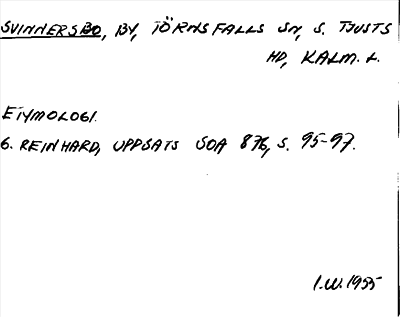 SVINNERSBO, BY, TÖRNSFALLS SN, S. TJUSTS
HD, KALM. L.
ETYMOLOGI.
G. REINHARD, UPPSATS SOA 876, S. 95-97.
I.W. 1955